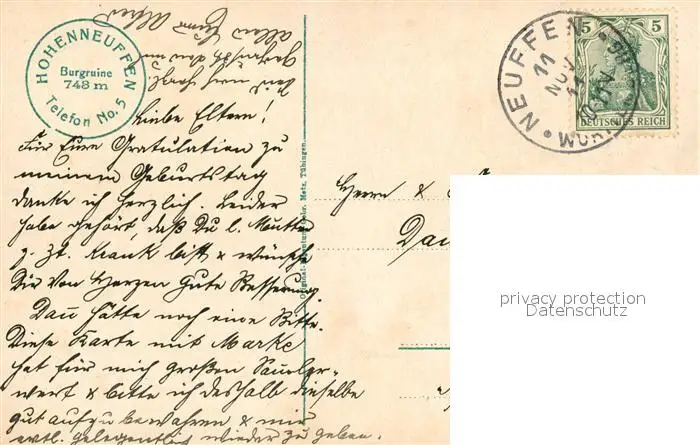 HOHENNEUFFEN
Burgruine
743 m
Telefon No. 5
Liebe Eltern!
Für Eure Gratulation zu
meinem Geburtstag
danke ich herzlich. Leider
habe gehört, daß Du l. Mutter
z. Zt. krank bist & wünsche
Dir von Herzen gute Besserung.
Dann hätte noch eine Bitte.
Diese Karte mit Marke
hat für mich großen Sammler-
wert & bitte ich deshalb dieselbe
gut aufzubewahren & mir
evtl. gelegentlich wieder zu geben.
Euer Alfred
Original-Aufnahme Gebr. Metz, Tübingen.
NEUFFEN
11
NOV
5 5
DEUTSCHES REICH
Herrn &
privacy protection
Datenschutz